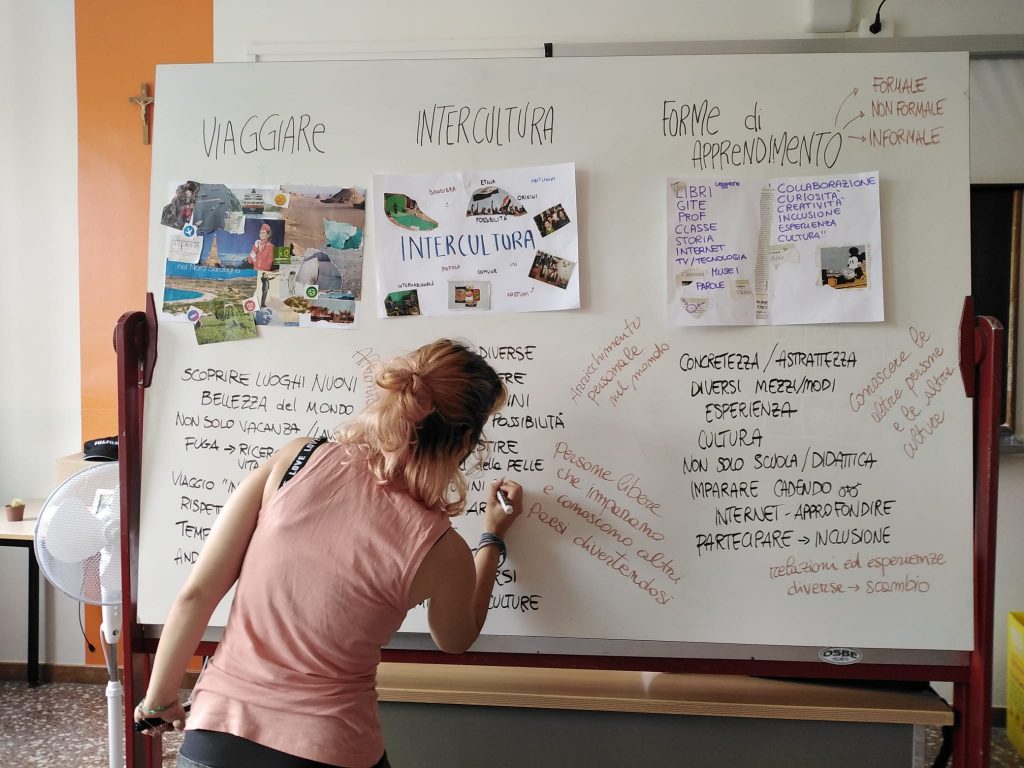 VIAGGIARE
INTERCULTURA
FORME di
APPRENDIMENTO
FORMALE
NON FORMALE
INFORMALE
nel Nord Sardegna
BANDIERA
ETNIA
ORIGINI
POSSIBILITÀ
INTERCULTURA
POPOLO
COMUNE
INTERNAZIONALE
COSTUMI
LIBRI Leggere
GITE
PROF
CLASSE
STORIA
INTERNET
TV/TECNOLOGIA
MUSEI
PAROLE
COLLABORAZIONE
CURIOSITÀ
CREATIVITÀ
INCLUSIONE
ESPERIENZA
CULTURA"
SCOPRIRE LUOGHI NUOVI
BELLEZZA del MONDO
NON SOLO VACANZA /
FUGA →
VITA
VIAGGIO
DIVERSE
POSSIBILITÀ
della PELLE
CULTURE
Arricchimento
personale
nel mondo
Persone libere
che imparano
e conoscono altri
Paesi divertendosi
CONCRETEZZA / ASTRATTEZZA
DIVERSI MEZZI/MODI
ESPERIENZA
CULTURA
NON SOLO SCUOLA / DIDATTICA
IMPARARE CADENDO
INTERNET - APPROFONDIRE
PARTECIPARE → INCLUSIONE
Conoscere le
altre persone
e le altre
culture
relazioni ed esperienze
diverse → scambio
LOVE
OSBE